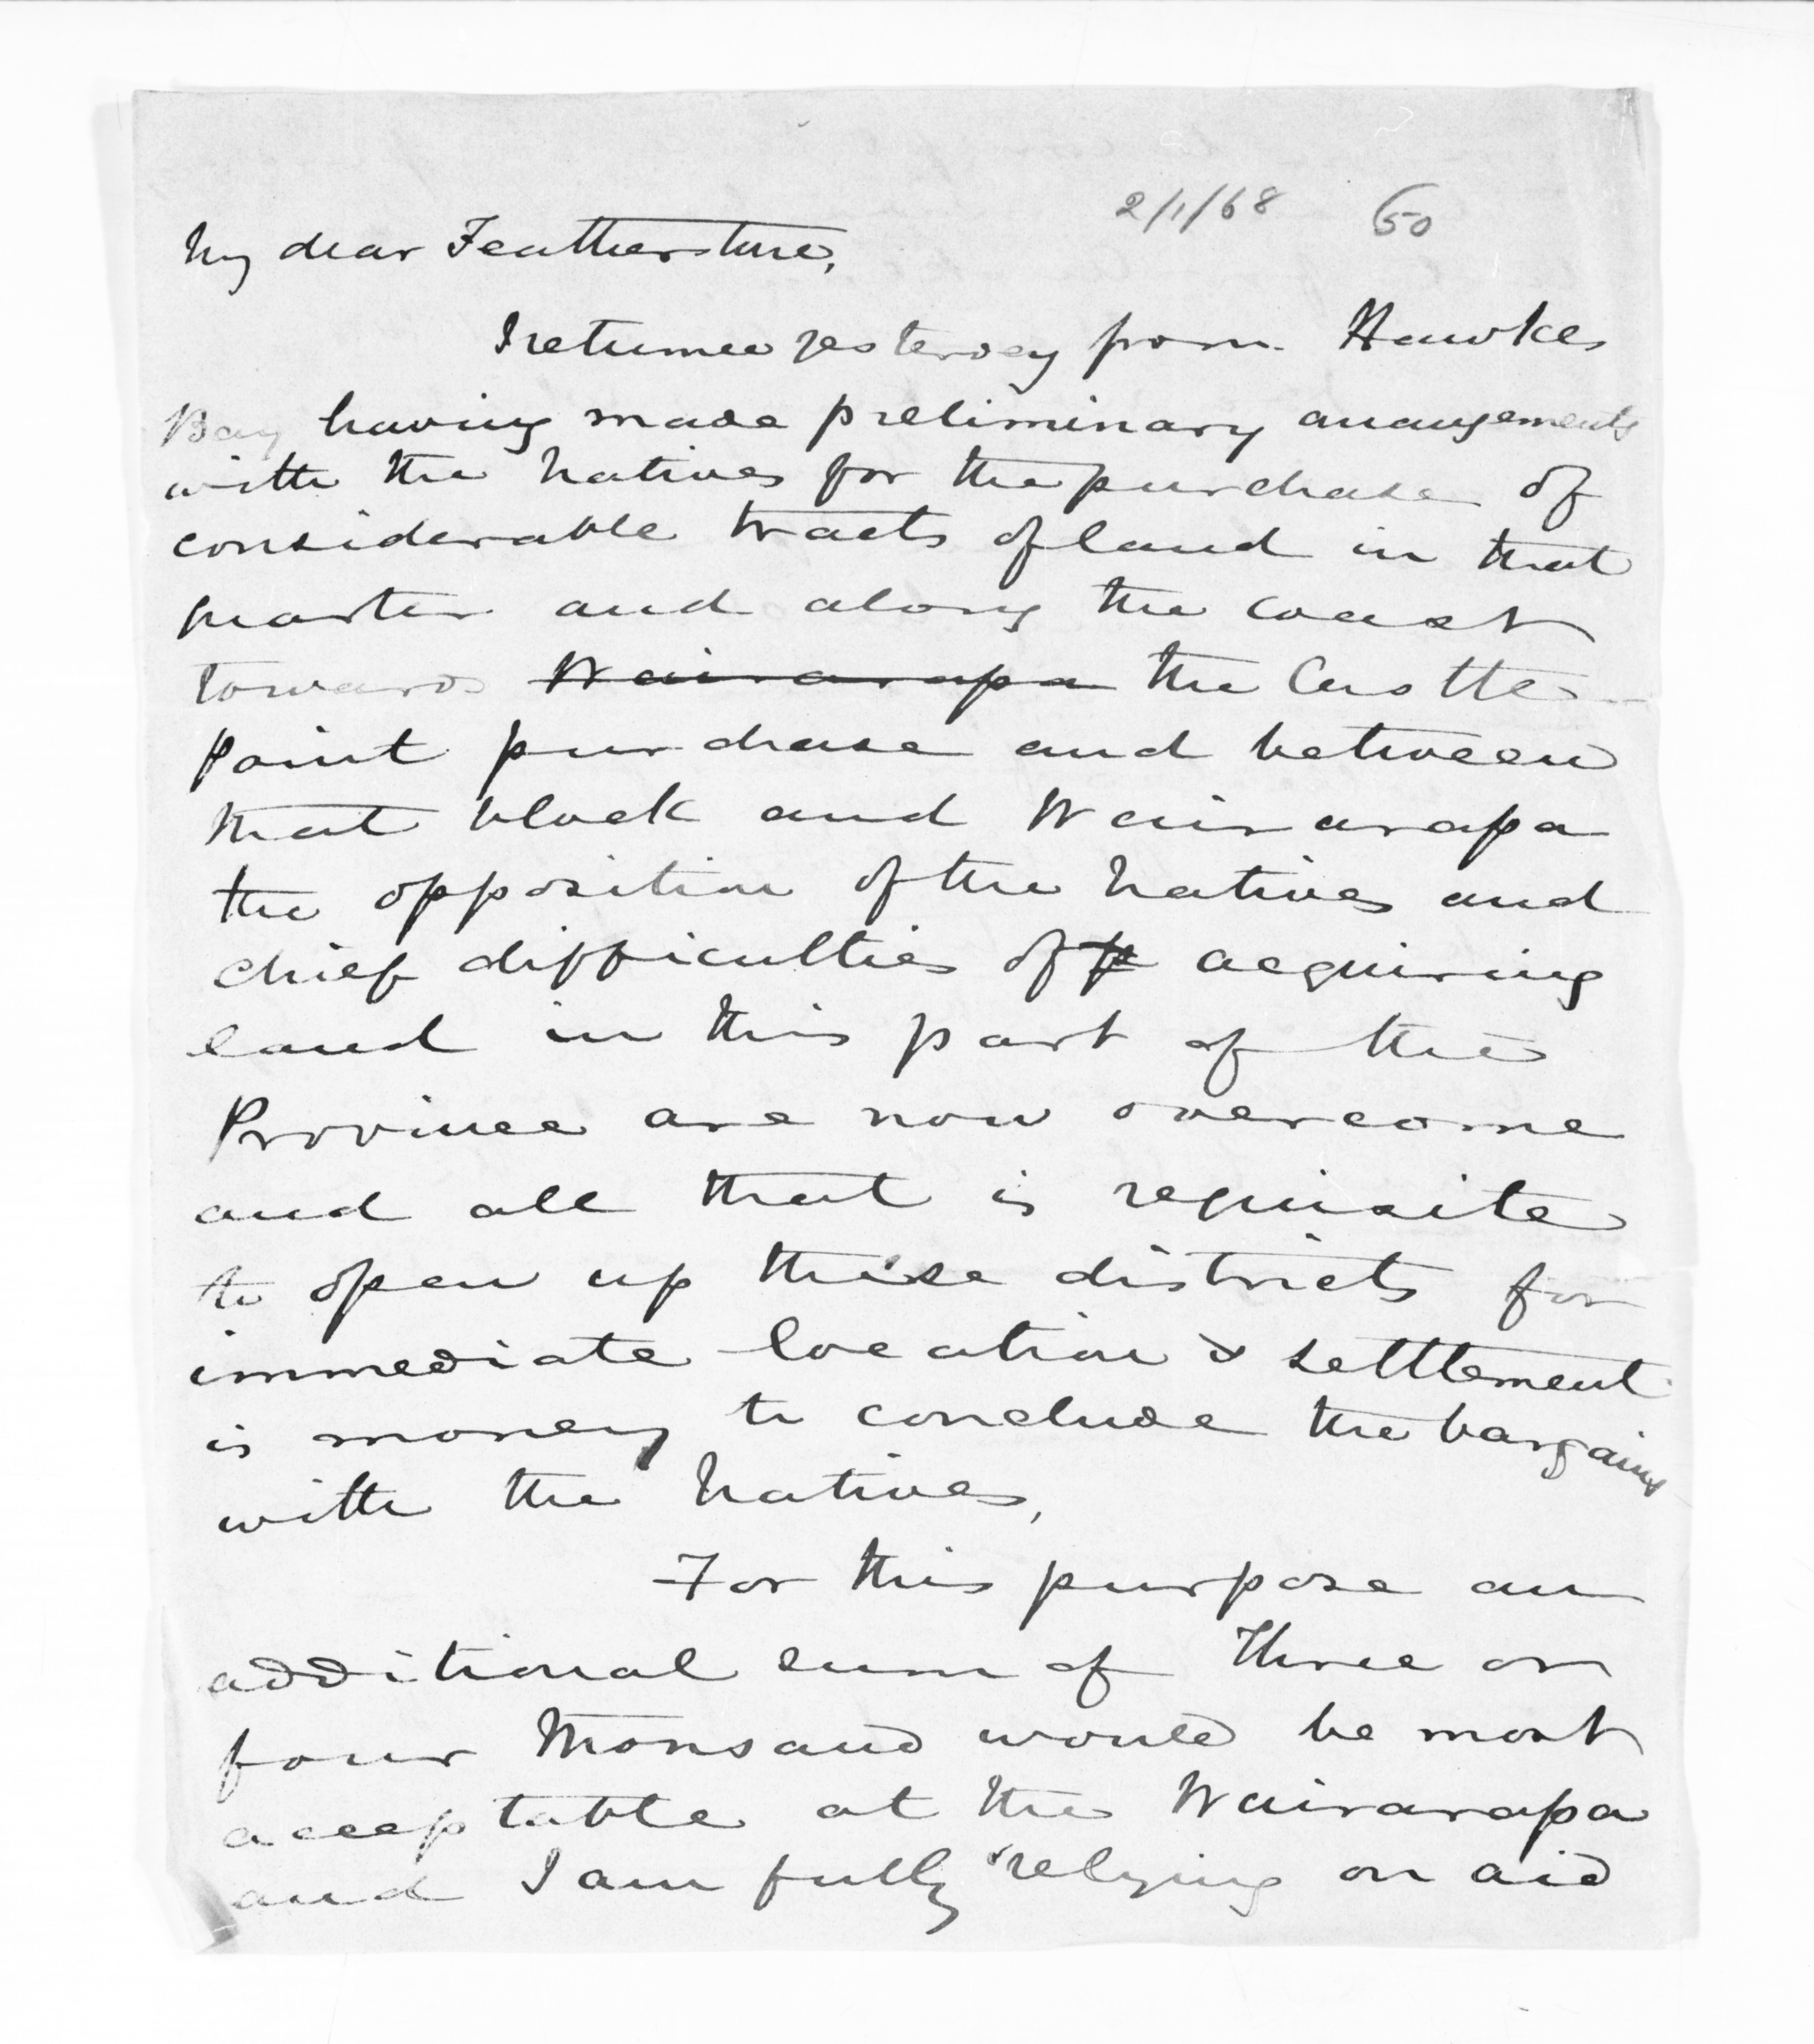 2/1/68 50
My dear Featherstone,
I returned yesterday from Hawkes
Bay having made preliminary arrangements
with the Natives for the purchase of
considerable tracts of land in that
quarter and along the coast
towards Wairarapa the Castle
Point purchase and between
that block and Wairarapa
the opposition of the Natives and
chief difficulties of acquiring
land in this part of the
Province are now overcome
and all that is requisite
to open up these districts for
immediate location & settlement
is money to conclude the bargains
with the Natives,
For this purpose an
additional sum of three or
four thousand would be most
acceptable at the Wairarapa
and I am fully relying on aid